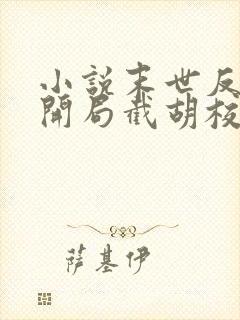 小說末世反
開局截胡校
薩基伊